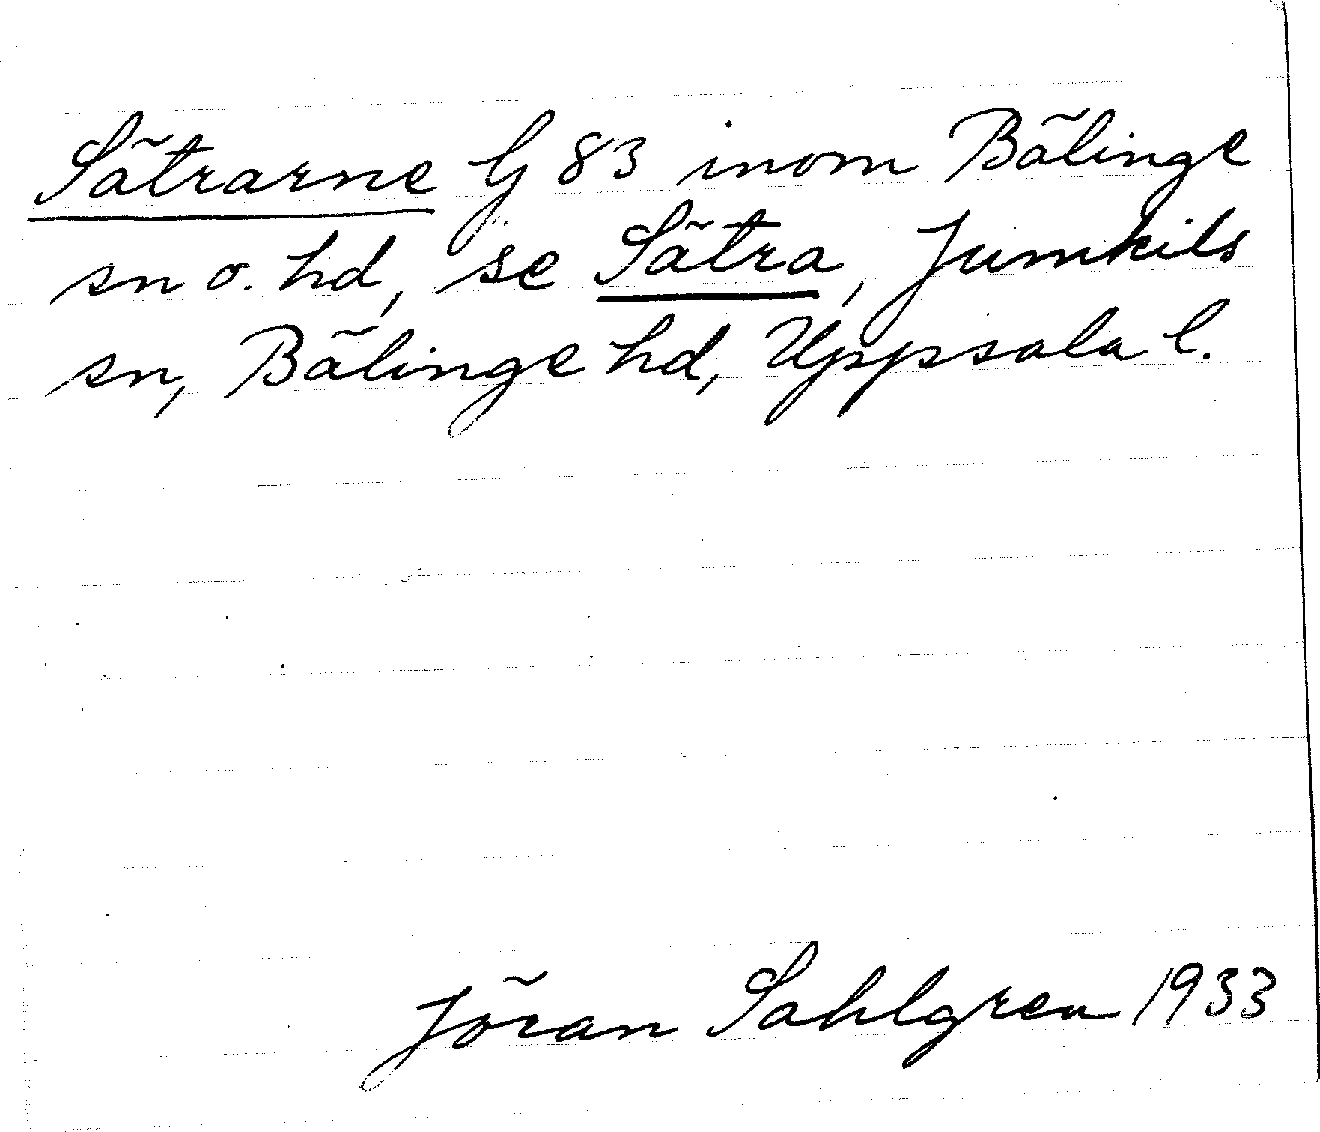 Sätrarne G 83 inom Bälinge
sn o. hd, se Sätra, Jumkils
sn, Bälinge hd, Uppsala l.
Jöran Sahlgren 1933